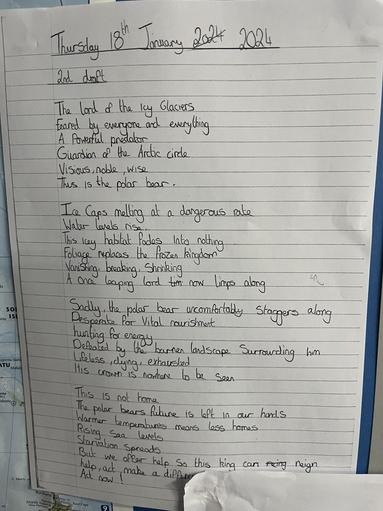 Thursday 18th January 2024 2024
2nd draft
The lord of the Icy Glaciers
Feared by everyone and everything
A Powerful predator
Guardian of the Arctic circle
Visious, noble, wise
Thus is the polar bear.
Ice Caps melting at a dangerous rate
Water levels rise.
This icy habitat fades Into nothing
Foliage replaces the frozen kingdom
Vanishing, breaking, Shrinking
A once leaping lord now limps along
Sadly, the polar bear uncomfortably Staggers along
Desperate for Vital nourishment
hunting for energy
Defeated by the barren landscape Surrounding him
Lifeless, dying, exhausted
His crown is nowhere to be seen
This is not home
The polar bears future is left in our hands
Warmer temperatures means less homes
Rising sea levels
Starvation spreads
But we offer help So this king can reign
help, act make a
Act now!